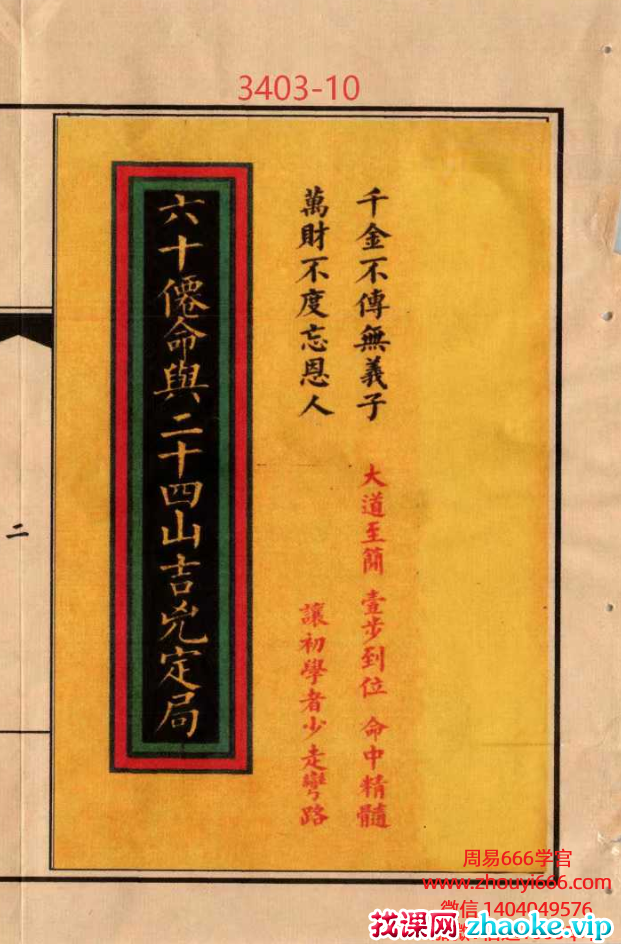 3403-10
千金不傳無義子
萬財不度忘恩人
大道至簡 壹步到位 命中精髓
讓初學者少走彎路
六十僊命與二十四山吉兇定局
二
周易666学官
www.zhouyi666.com
微信 1404049576
找课网 zhaoke.vip